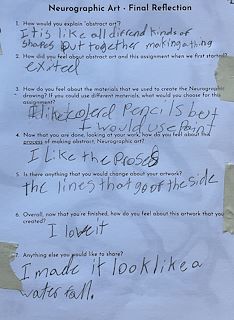 Neurographic Art - Final Reflection
1. How would you explain "abstract art"?
It is like all differend kinds of
shapes put together making a thing
2. How did you feel about abstract art and this assignment when we first started?
exited
3. How do you feel about the materials that we used to create the Neurographic
drawing? If you could use different materials, what would you choose for this
assignment?
I like colerd Pencils but
I would use Paint
4. Now that you are done, looking at your work, how do you feel about this
process of making abstract, Neurographic art?
I Like the Proses
5. Is there anything that you would change about your artwork?
the lines that go of the side
6. Overall, now that you're finished, how do you feel about this artwork that you
created?
I love it
7. Anything else you would like to share?
I made it look like a
water fall.